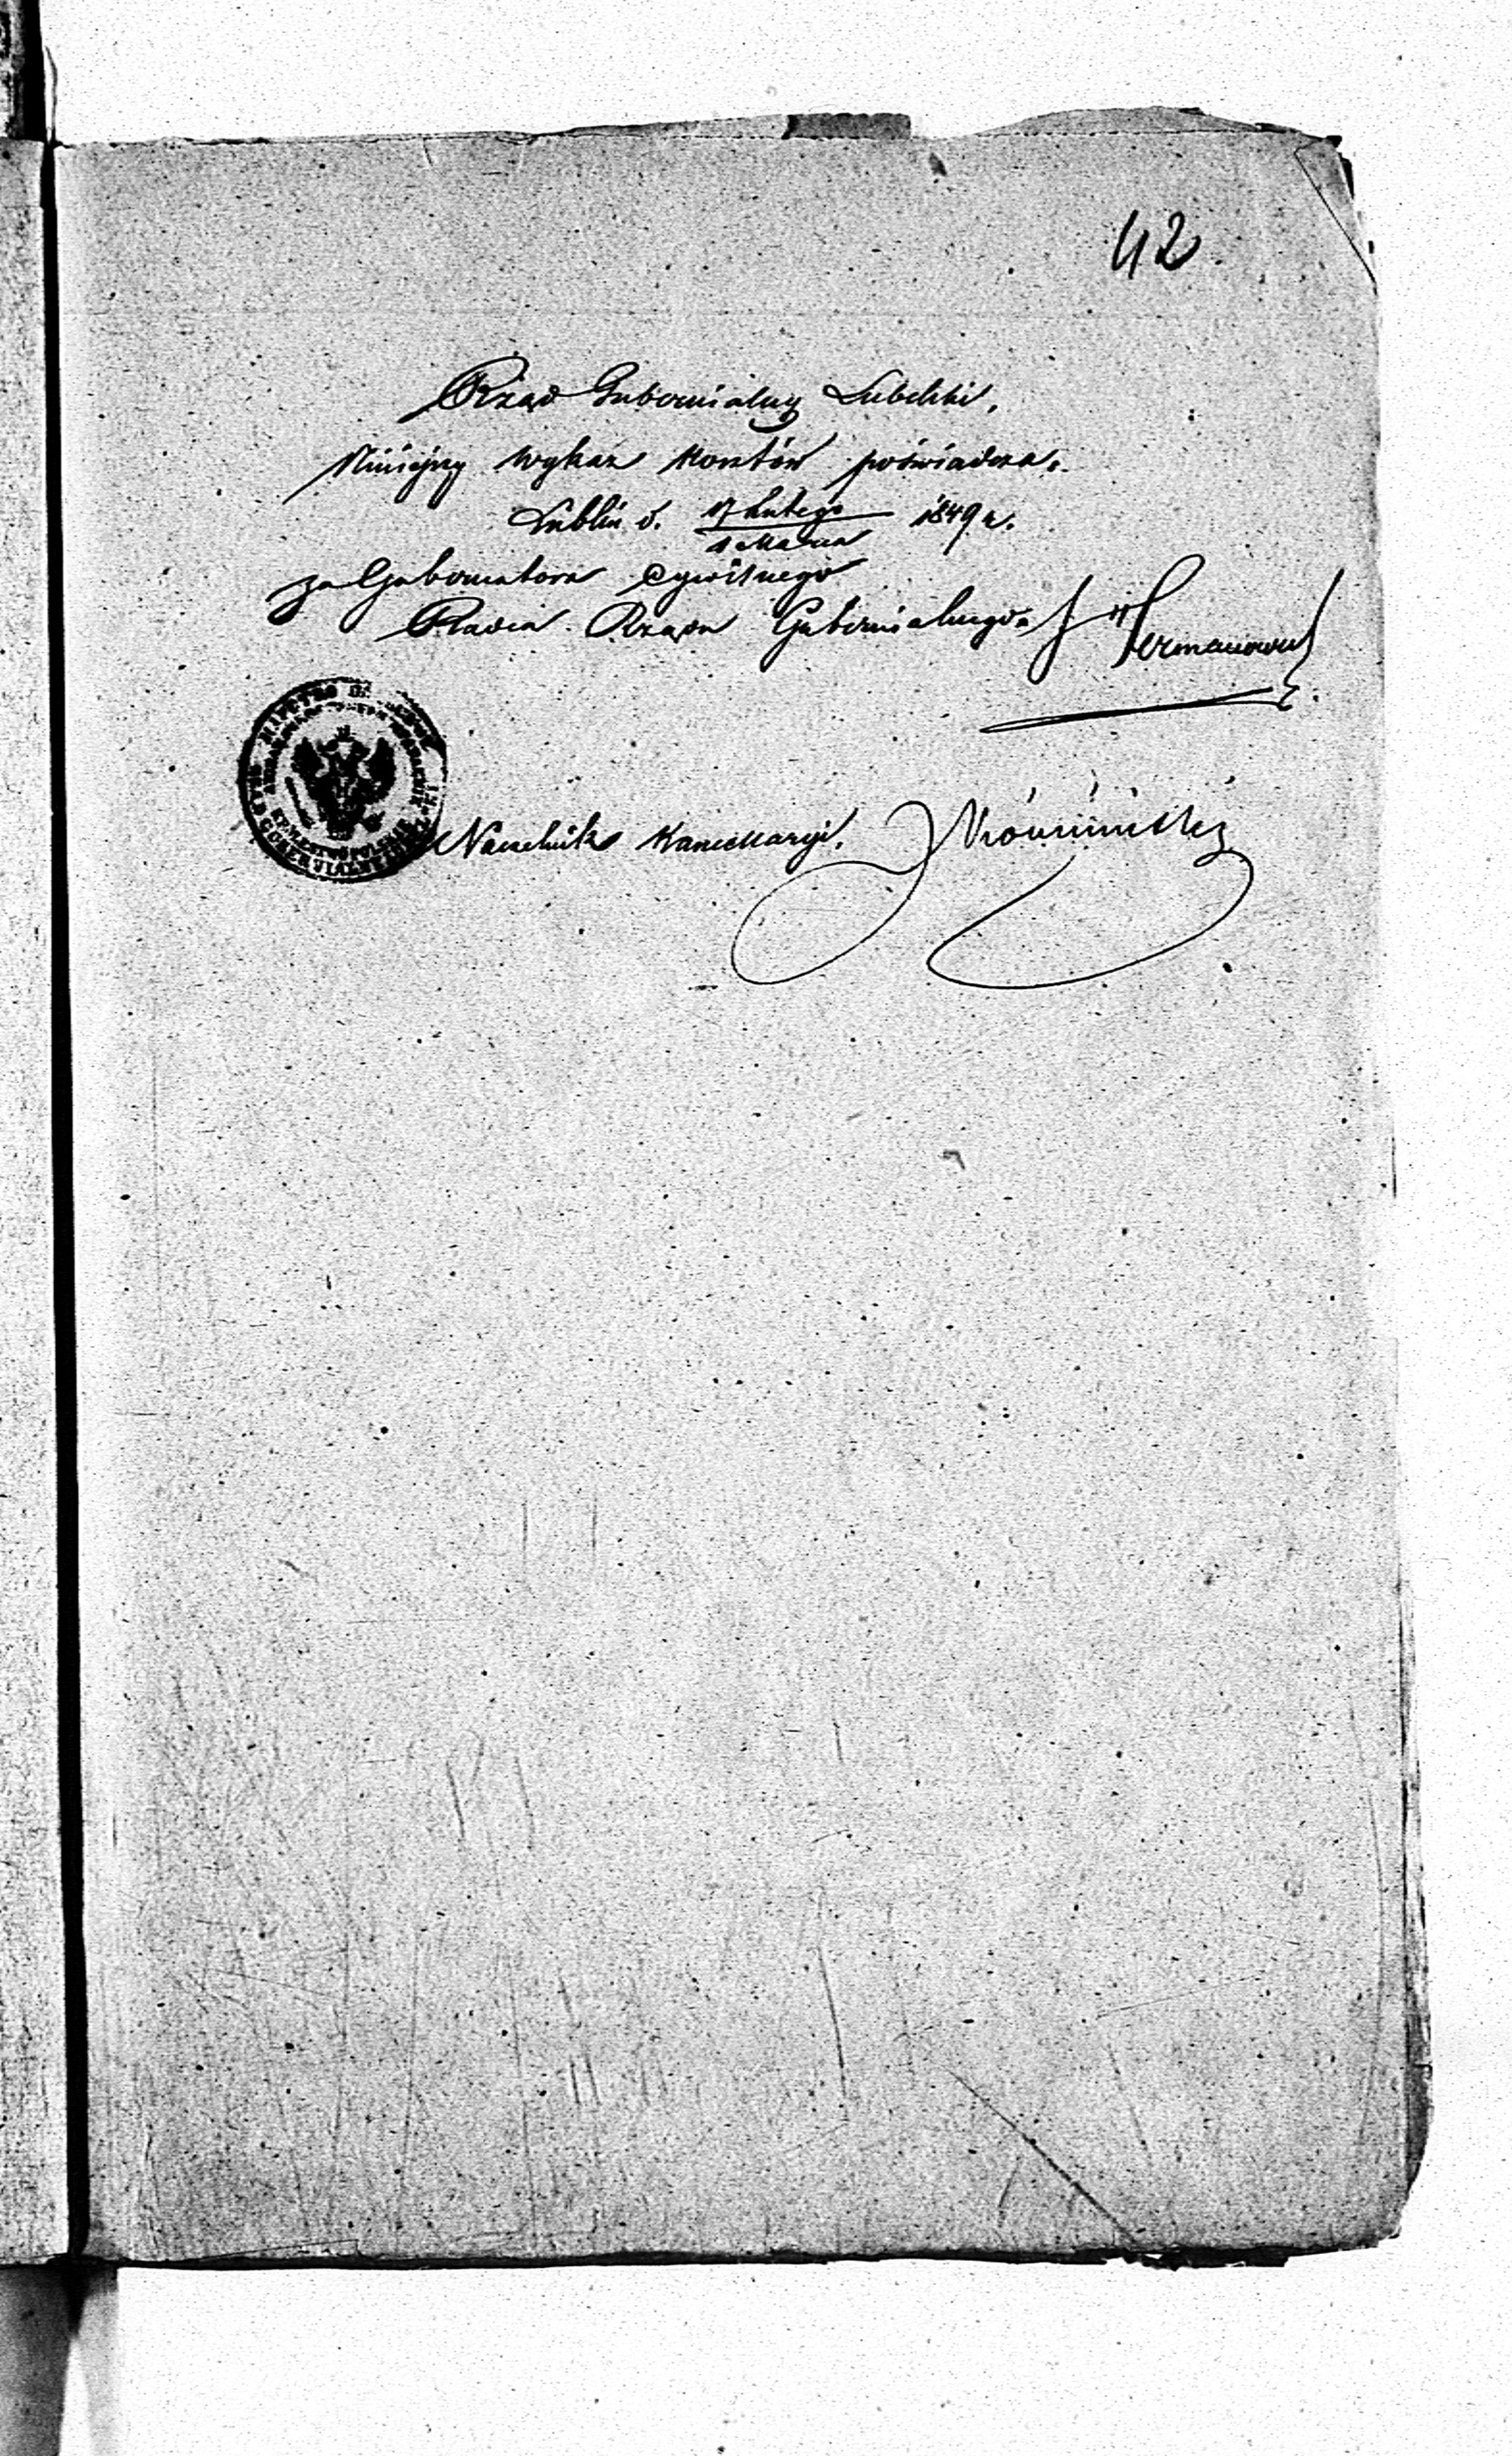 42
Rząd Gubernialny Lubelski,
Niniejszy wykaz kosztów poświadcza.
Lublin d. 17 Lutego 1849 r.
1 Marca
za Gubernatora Cywilnego
Radca Rządu Gubernialnego
Naczelnik Kancellaryi,